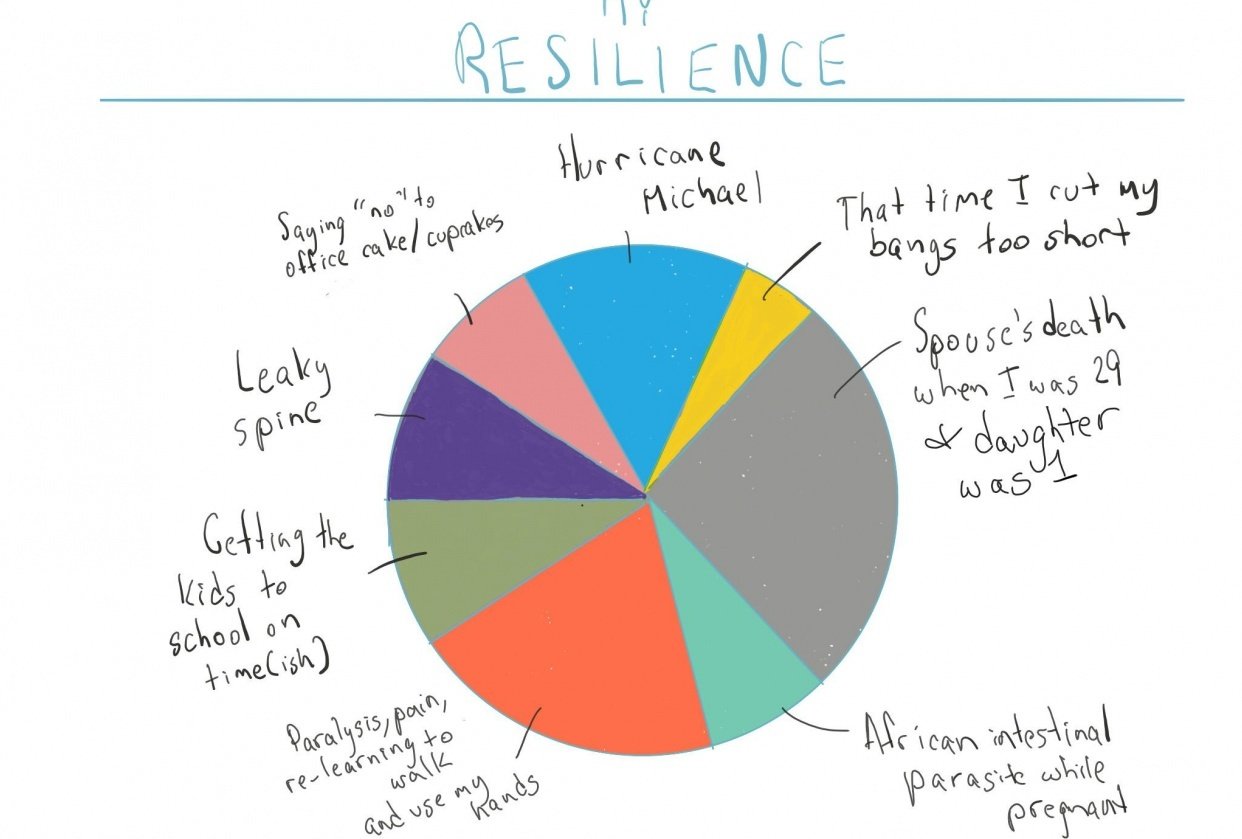 RESILIENCE
Hurricane
Michael
That time I cut my
bangs too short
Saying "no" to
office cake/cupcakes
Spouse's death
when I was 29
& daughter
was 1
Leaky
spine
Getting the
kids to
school on
time(ish)
Paralysis, pain,
re-learning to
walk
and use my
hands
African intestinal
parasite while
pregnant